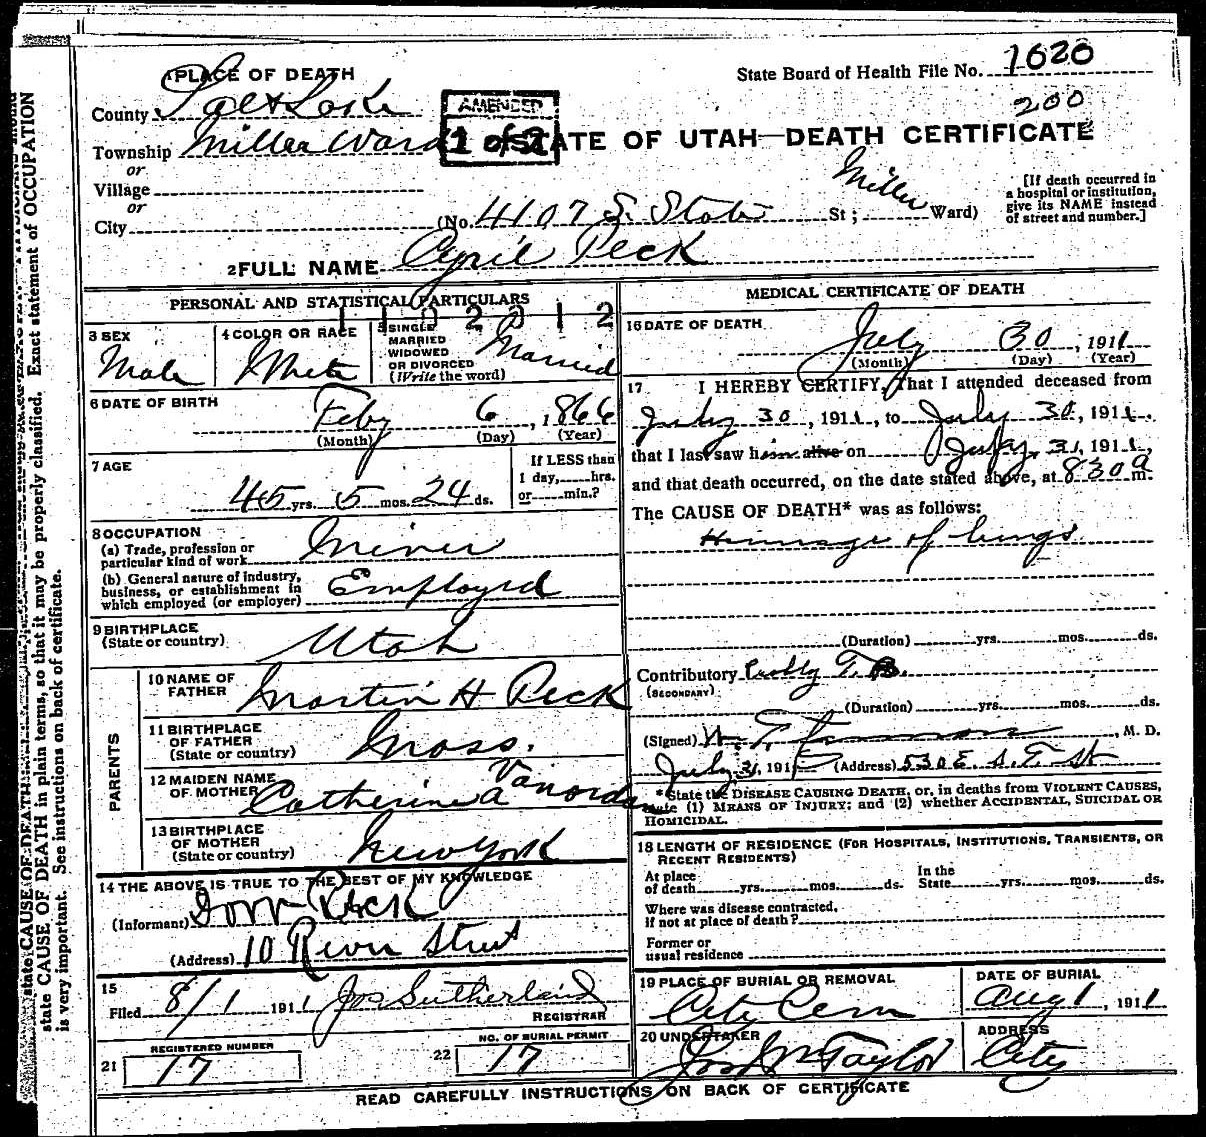 1 PLACE OF DEATH
State Board of Health File No. 1620
200
County Salt Lake
AMENDED
1 of 2
Township Miller Ward
STATE OF UTAH—DEATH CERTIFICATE
or
Village
or
City
(No. 4107 S. State St; Miller Ward)
[If death occurred in
a hospital or institution,
give its NAME instead
of street and number.]
2 FULL NAME Cyril Peck
PERSONAL AND STATISTICAL PARTICULARS
3 SEX
Male
4 COLOR OR RACE
White
5 SINGLE
MARRIED
WIDOWED
OR DIVORCED
(Write the word)
Married
6 DATE OF BIRTH
Feby 6, 1866
(Month) (Day) (Year)
7 AGE
45 yrs. 5 mos. 24 ds.
If LESS than
1 day, hrs.
or min.?
8 OCCUPATION
(a) Trade, profession or
particular kind of work Miner
(b) General nature of industry,
business, or establishment in
which employed (or employer) Employed
9 BIRTHPLACE
(State or country) Utah
PARENTS
10 NAME OF
FATHER Martin H Peck
11 BIRTHPLACE
OF FATHER
(State or country) Mass.
12 MAIDEN NAME
OF MOTHER Catherine A Vanorden
13 BIRTHPLACE
OF MOTHER
(State or country) New York
14 THE ABOVE IS TRUE TO THE BEST OF MY KNOWLEDGE
(Informant) Peck
(Address) 10 River Street
15
Filed 8/1 1911 Jos Sutherland
REGISTRAR
21 REGISTERED NUMBER
17
22 NO. OF BURIAL PERMIT
17
MEDICAL CERTIFICATE OF DEATH
16 DATE OF DEATH
July 30, 1911
(Month) (Day) (Year)
17 I HEREBY CERTIFY, That I attended deceased from
July 30, 1911, to July 30, 1911.
that I last saw him alive on July 31, 1911,
and that death occurred, on the date stated above, at 830 a m.
The CAUSE OF DEATH* was as follows:
of lungs
(Duration) yrs. mos. ds.
Contributory T.B.
(SECONDARY)
(Duration) yrs. mos. ds.
(Signed) , M. D.
July 31, 191 (Address) 530 E. S. T. St
*State the DISEASE CAUSING DEATH, or, in deaths from VIOLENT CAUSES,
state (1) MEANS OF INJURY; and (2) whether ACCIDENTAL, SUICIDAL OR
HOMICIDAL.
18 LENGTH OF RESIDENCE (FOR HOSPITALS, INSTITUTIONS, TRANSIENTS, OR
RECENT RESIDENTS)
At place
of death yrs. mos. ds.
In the
State yrs. mos. ds.
Where was disease contracted,
if not at place of death?
Former or
usual residence
19 PLACE OF BURIAL OR REMOVAL
City Cem
DATE OF BURIAL
Aug 1, 1911
20 UNDERTAKER
Jos Wm Taylor
ADDRESS
City
READ CAREFULLY INSTRUCTIONS ON BACK OF CERTIFICATE
state CAUSE OF DEATH in plain terms, so that it may be properly classified. Exact statement of OCCUPATION
is very important. See instructions on back of certificate.